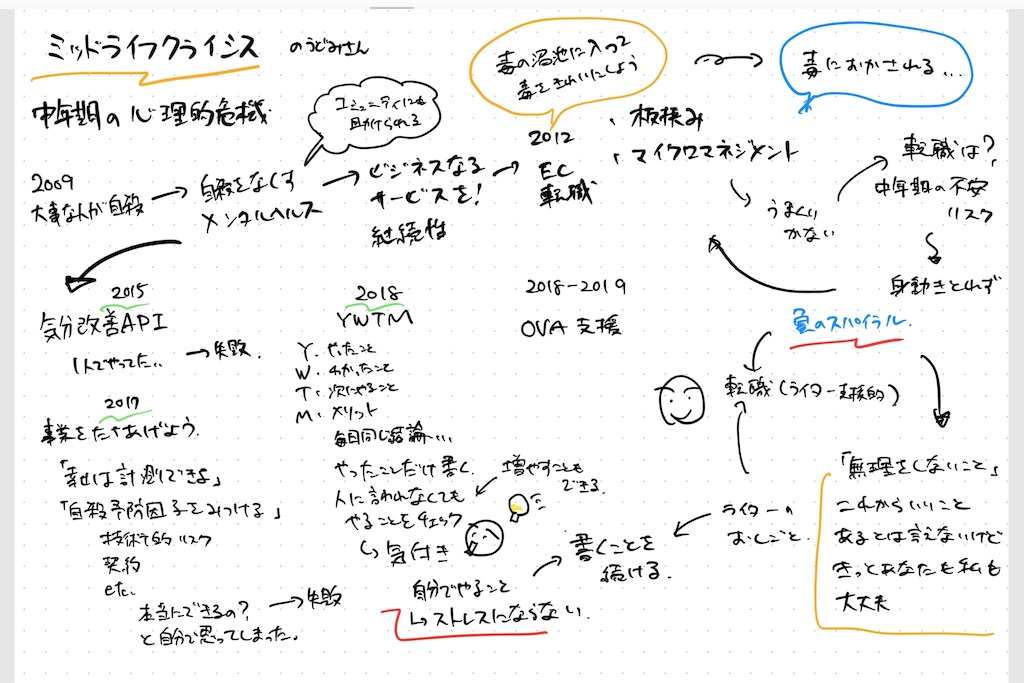 ミッドライフクライシス
のうどみさん
中年期の心理的危機
コミュニティにも
助けられる
毒の沼池に入って
毒をきれいにしよう
毒におかされる...
2009
大事な人が自殺
自殺をなくす
メンタルヘルス
ビジネスなる
サービスを!
継続性
2012
EC
転職
板挟み
マイクロマネジメント
うまくい
かない
転職は?
中年期の不安
リスク
身動きとれず
負のスパイラル.
2015
気分改善API
1人でやってた..
失敗.
2017
事業をたちあげよう.
「幸せは計測できるよ」
「自殺予防因子をみつける」
技術的リスク
契約
etc.
本当にできるの?
と自分で思ってしまった.
失敗
2018
YWTM
Y. やったこと
W. わかったこと
T. 次にやること
M. メリット
毎日同じ結論...
やったことだけ書く.
人に言われなくても
やることをチェック
気付き
増やすことも
できる.
自分でやること
ストレスにならない.
2018-2019
OVA 支援
書くことを
続ける.
ライターの
おしごと.
転職(ライター支援的)
「無理をしないこと」
これからいいこと
あるとは言えないけど
きっとあなたも私も
大丈夫